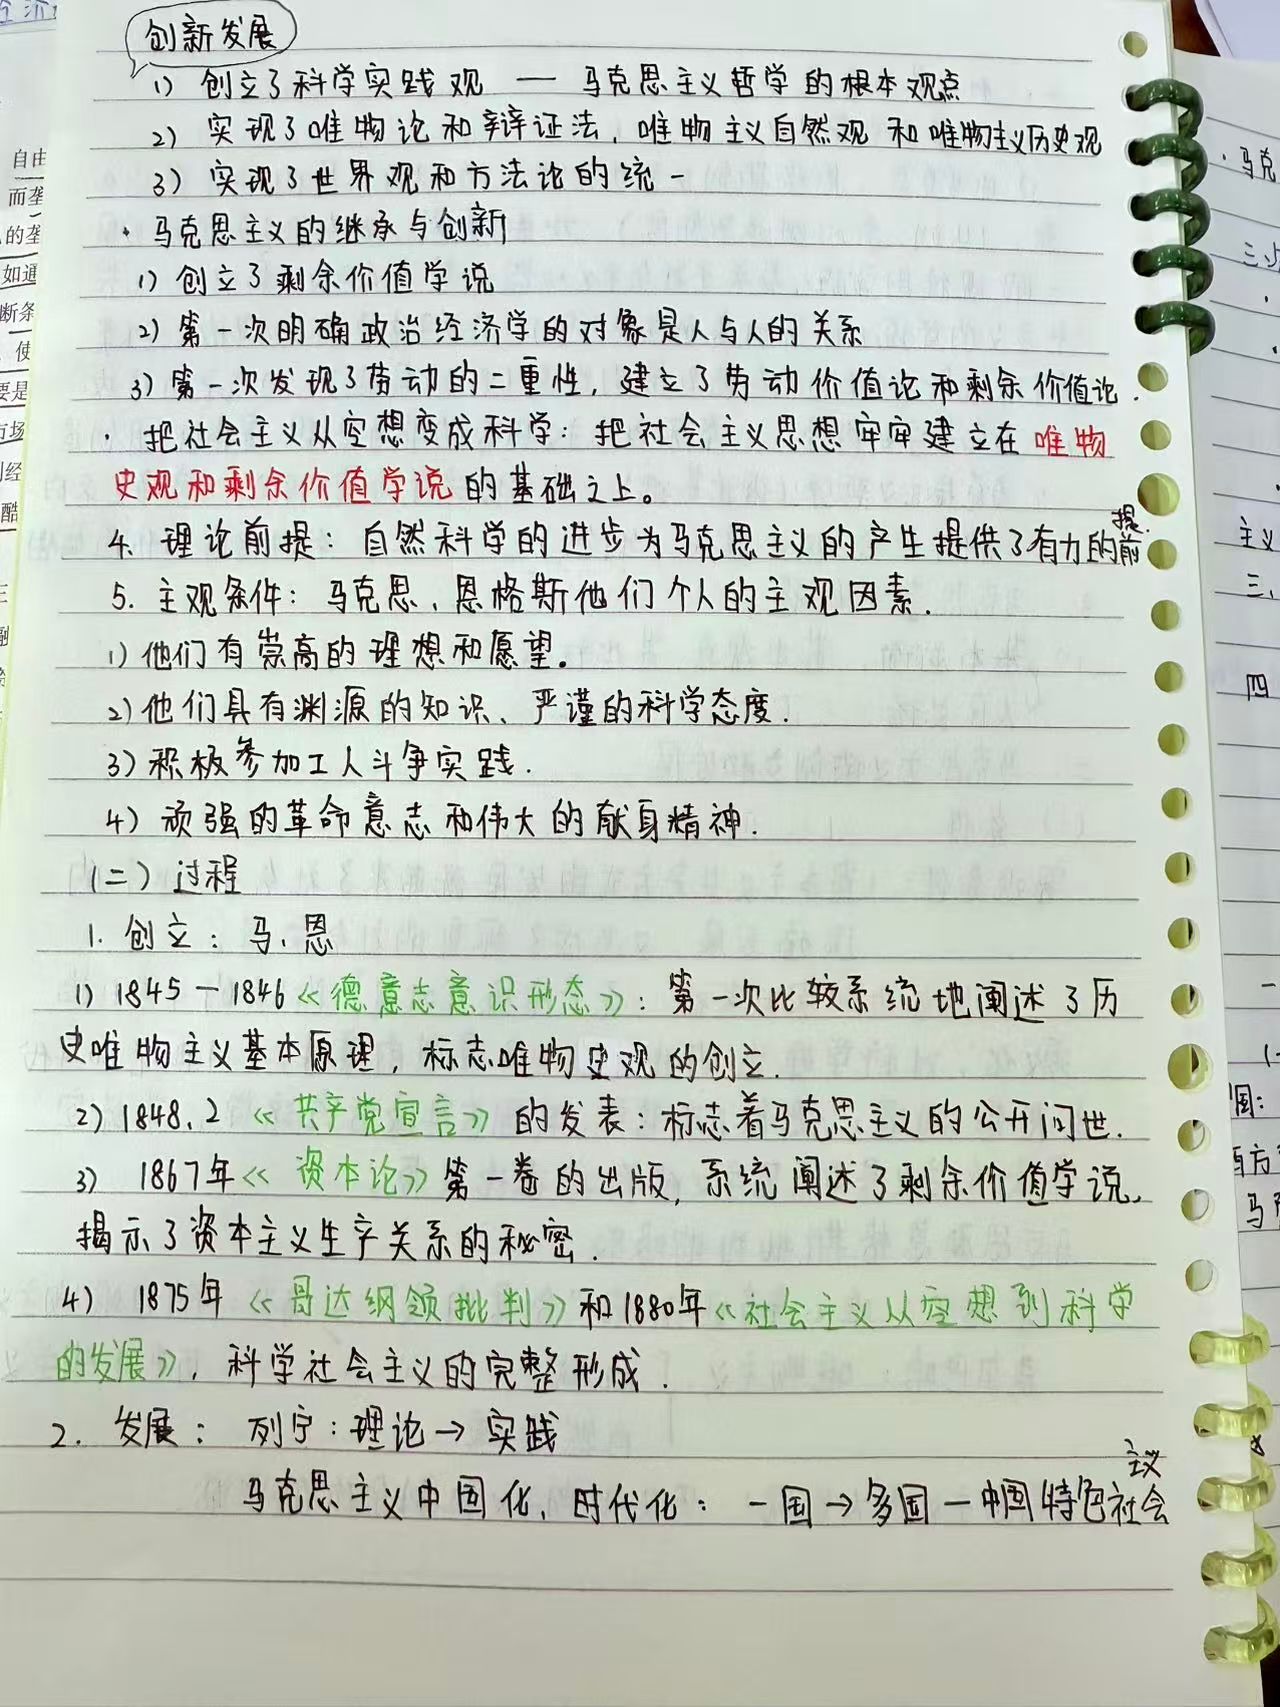 创新发展
1) 创立了科学实践观 — 马克思主义哲学的根本观点
2) 实现了唯物论和辩证法，唯物主义自然观和唯物主义历史观
3) 实现了世界观和方法论的统一
· 马克思主义的继承与创新
1) 创立了剩余价值学说
2) 第一次明确政治经济学的对象是人与人的关系
3) 第一次发现了劳动的二重性，建立了劳动价值论和剩余价值论.
· 把社会主义从空想变成科学：把社会主义思想牢牢建立在唯物
史观和剩余价值学说的基础之上。
4. 理论前提：自然科学的进步为马克思主义的产生提供了有力的前提.
5. 主观条件：马克思、恩格斯他们个人的主观因素.
1) 他们有崇高的理想和愿望。
2) 他们具有渊源的知识、严谨的科学态度.
3) 积极参加工人斗争实践.
4) 顽强的革命意志和伟大的献身精神.
(二) 过程
1. 创立：马、恩
1) 1845－1846《德意志意识形态》：第一次比较系统地阐述了历
史唯物主义基本原理，标志唯物史观的创立.
2) 1848.2《共产党宣言》的发表：标志着马克思主义的公开问世.
3) 1867年《资本论》第一卷的出版，系统阐述了剩余价值学说，
揭示了资本主义生产关系的秘密.
4) 1875年《哥达纲领批判》和1880年《社会主义从空想到科学
的发展》，科学社会主义的完整形成.
2. 发展：列宁：理论→实践
马克思主义中国化、时代化：一国→多国—中国特色社会主义
自由
而垄
的垄
如通
断条
使
要是
市场
酷
· 马克
主义
三、
四
国：
西方